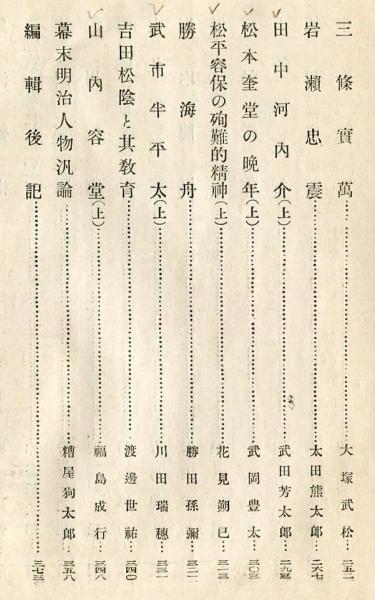 三條實萬……大塚武松…二五一
岩瀨忠震……太田熊太郎…二六七
田中河內介(上)……武田芳太郎…二九五
松本奎堂の晚年(上)……武岡豊太…三〇三
松平容保の殉難的精神(上)……花見朔巳…三一三
勝海舟……勝田孫彌…三二一
武市半平太(上)……川田瑞穗…三三一
吉田松陰と其敎育……渡邊世祐…三四〇
山內容堂(上)……福島成行…三四八
幕末明治人物汎論……糟屋狗太郎…三五八
編輯後記……三七三